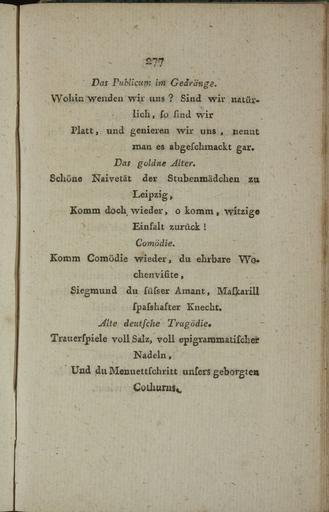 277
Das Publicum im Gedränge.
Wohin wenden wir uns? Sind wir natür-
lich, ſo ſind wir
Platt, und genieren wir uns, nennt
man es abgeſchmackt gar.
Das goldne Alter.
Schöne Naivetät der Stubenmädchen zu
Leipzig,
Komm doch wieder, o komm, witzige
Einfalt zurück!
Comödie.
Komm Comödie wieder, du ehrbare Wo-
chenviſite,
Siegmund du ſüſser Amant, Maſkarill
ſpaſshafter Knecht.
Alte deutſche Tragödie.
Trauerſpiele voll Salz, voll epigrammatiſcher
Nadeln,
Und du Menuettſchritt unſers geborgten
Cothurns.